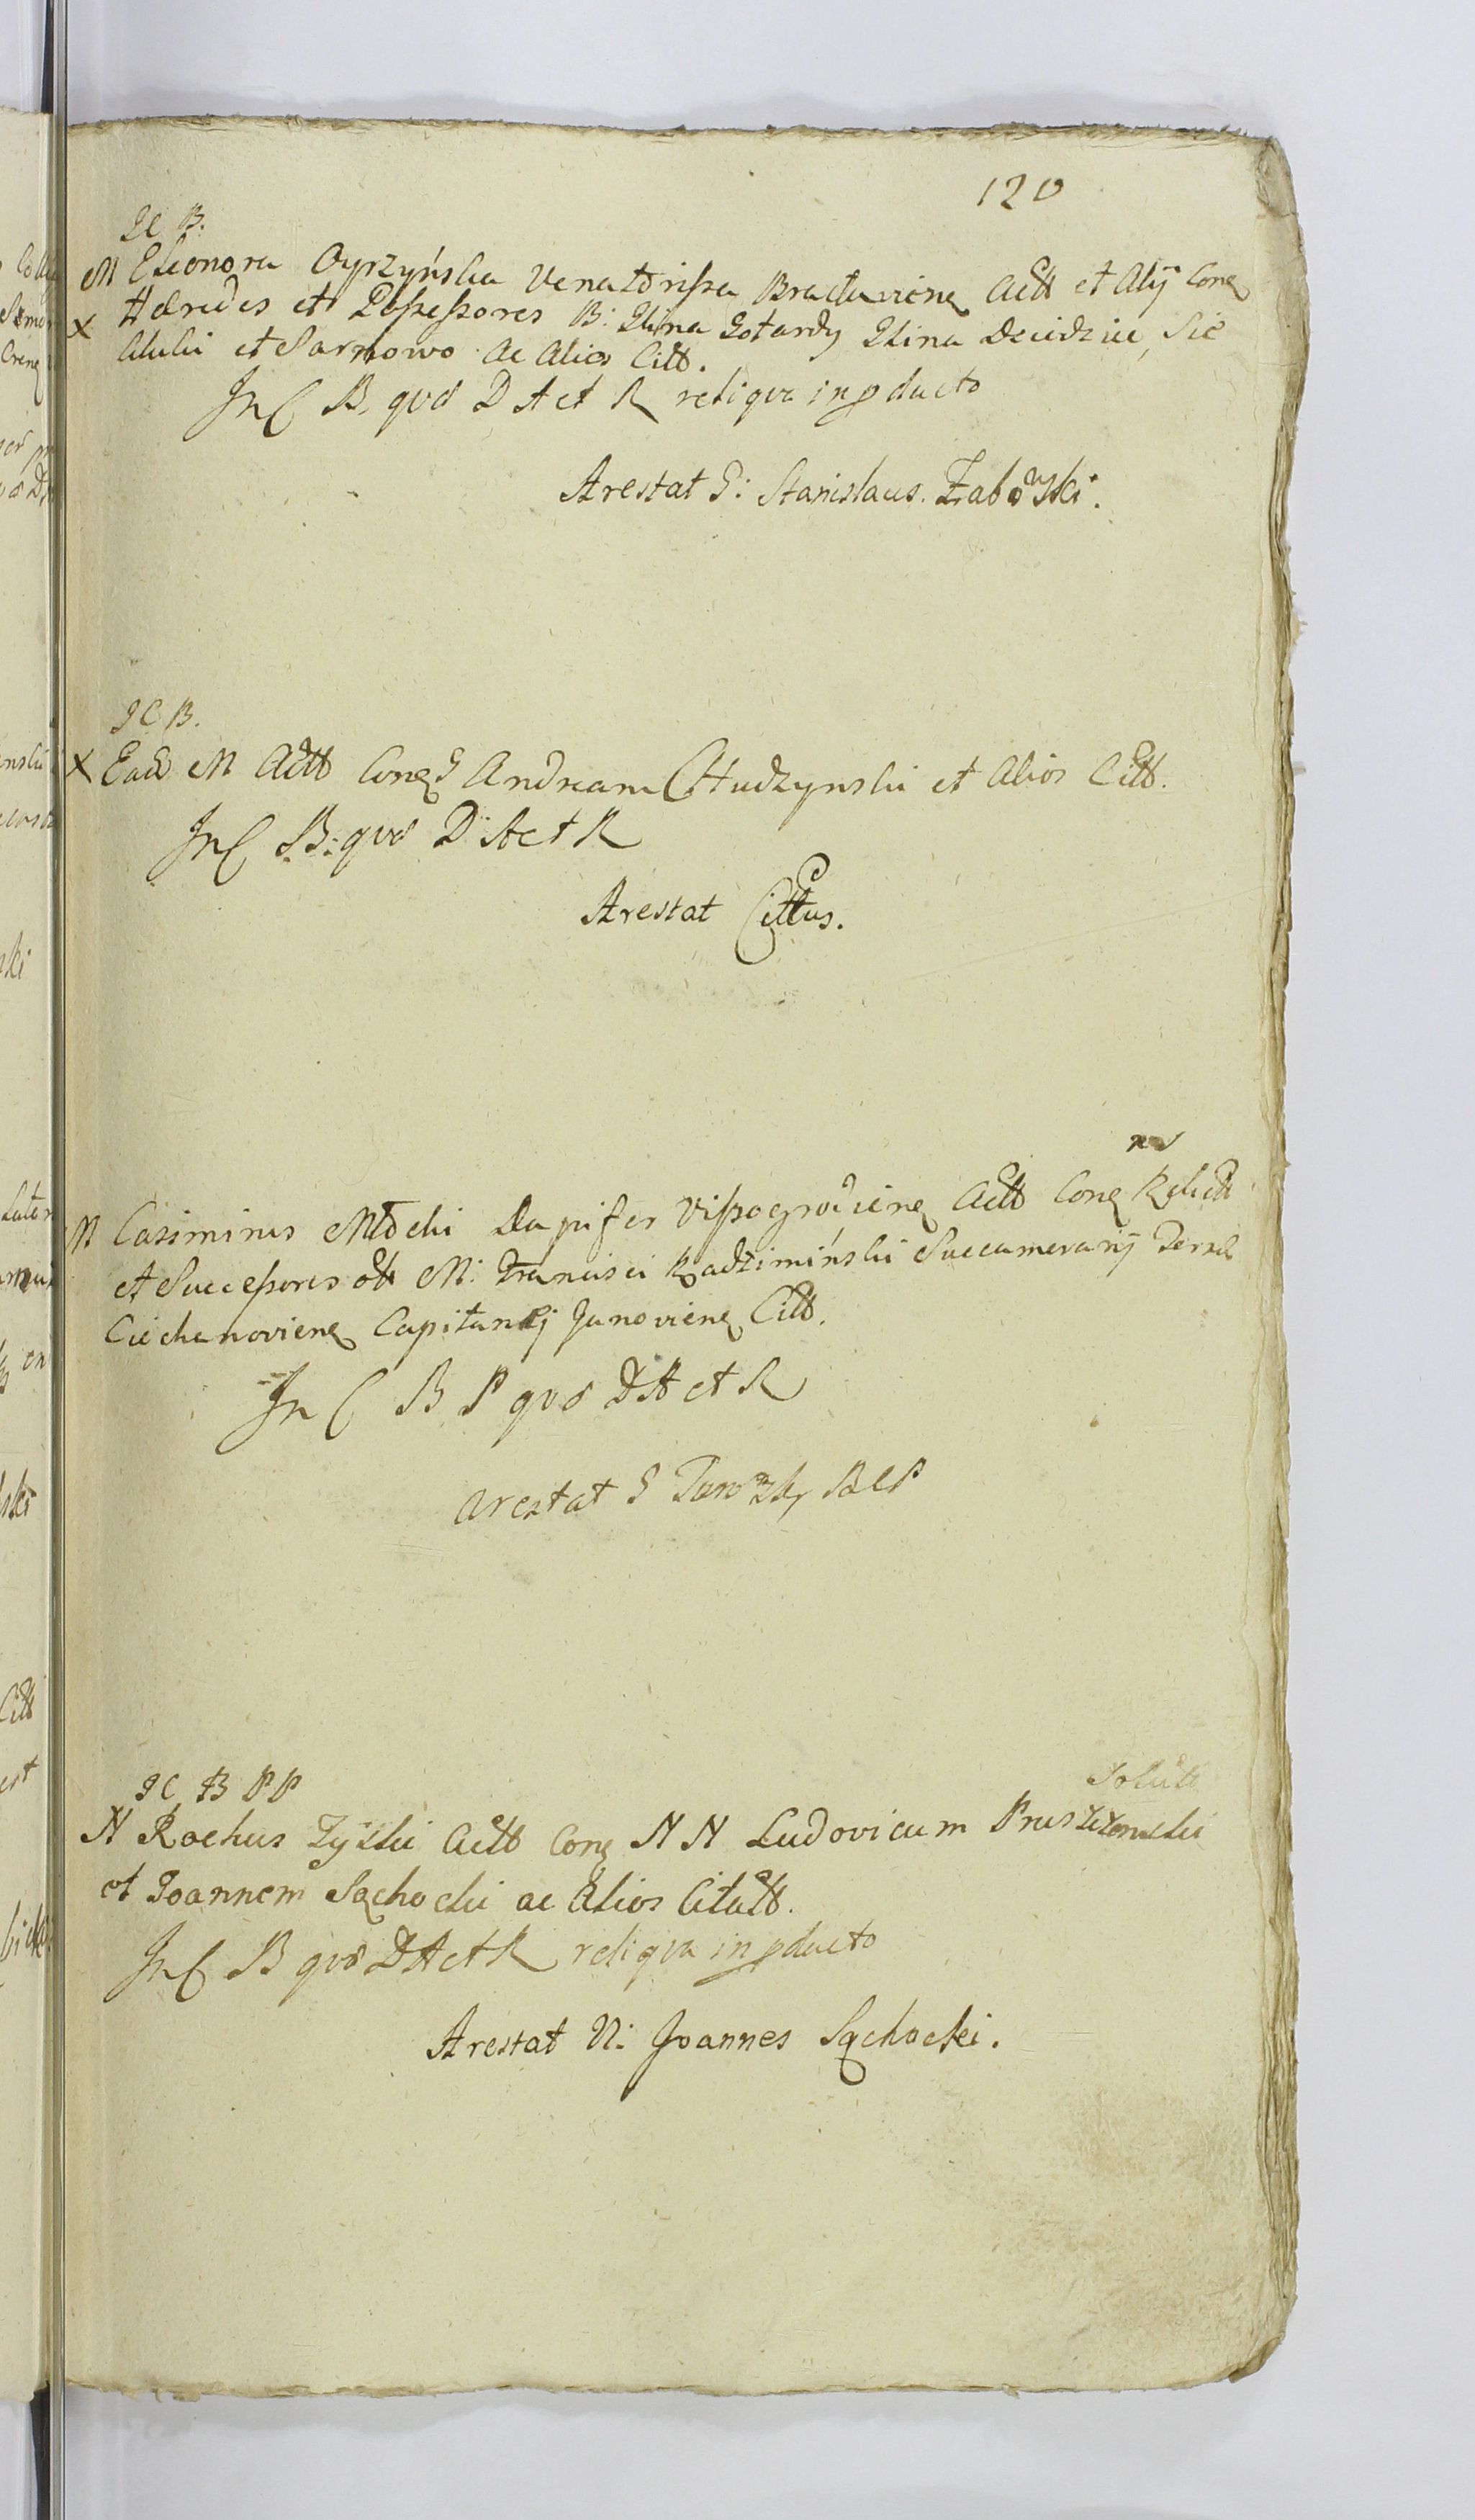 120
IC B.
M Eleonora Oyrzyńska Venatorissa Braclavien Actt et Alij Con
X Hæredes et Possessores B: Glina Gotardy Glina Dzieidzice, Sie
et Sarnowo Ac Alios Citt.
In C B. qvo D A et R reliqva in pducto
Arestat G: Stanislaus Żabowski.
IC B.
X Ead M Actt Con G Andream Chudzynski et Alios Citt.
In C B: qvo D A et R
Arestat Cittus.
M Casimirus Młocki Dapifer Vissogrodien Actt Con Relictt
et Successores ott M: Francisci Radzimiński Succamerarij Terrae
Ciechanovien Capitanej Janovien Citt.
In C B P qvo D A et R
Arestat G
IC B P P
Solutt
N Rochus Zyski Actt Con N N Ludovicum
et Joannem Sąchocki ac Alios Citatt.
In C B qvo D A et R reliqva in pducto
Arestat N: Joannes Sąchocki.